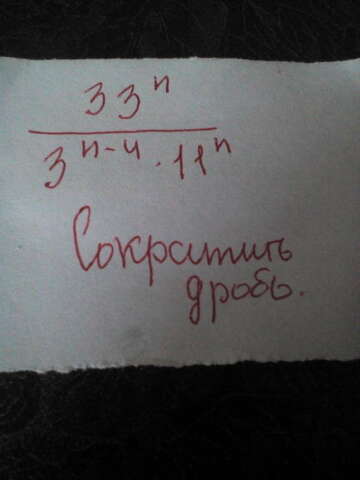 33ⁿ
3ⁿ⁻⁴ · 11ⁿ
Сократить
дробь.